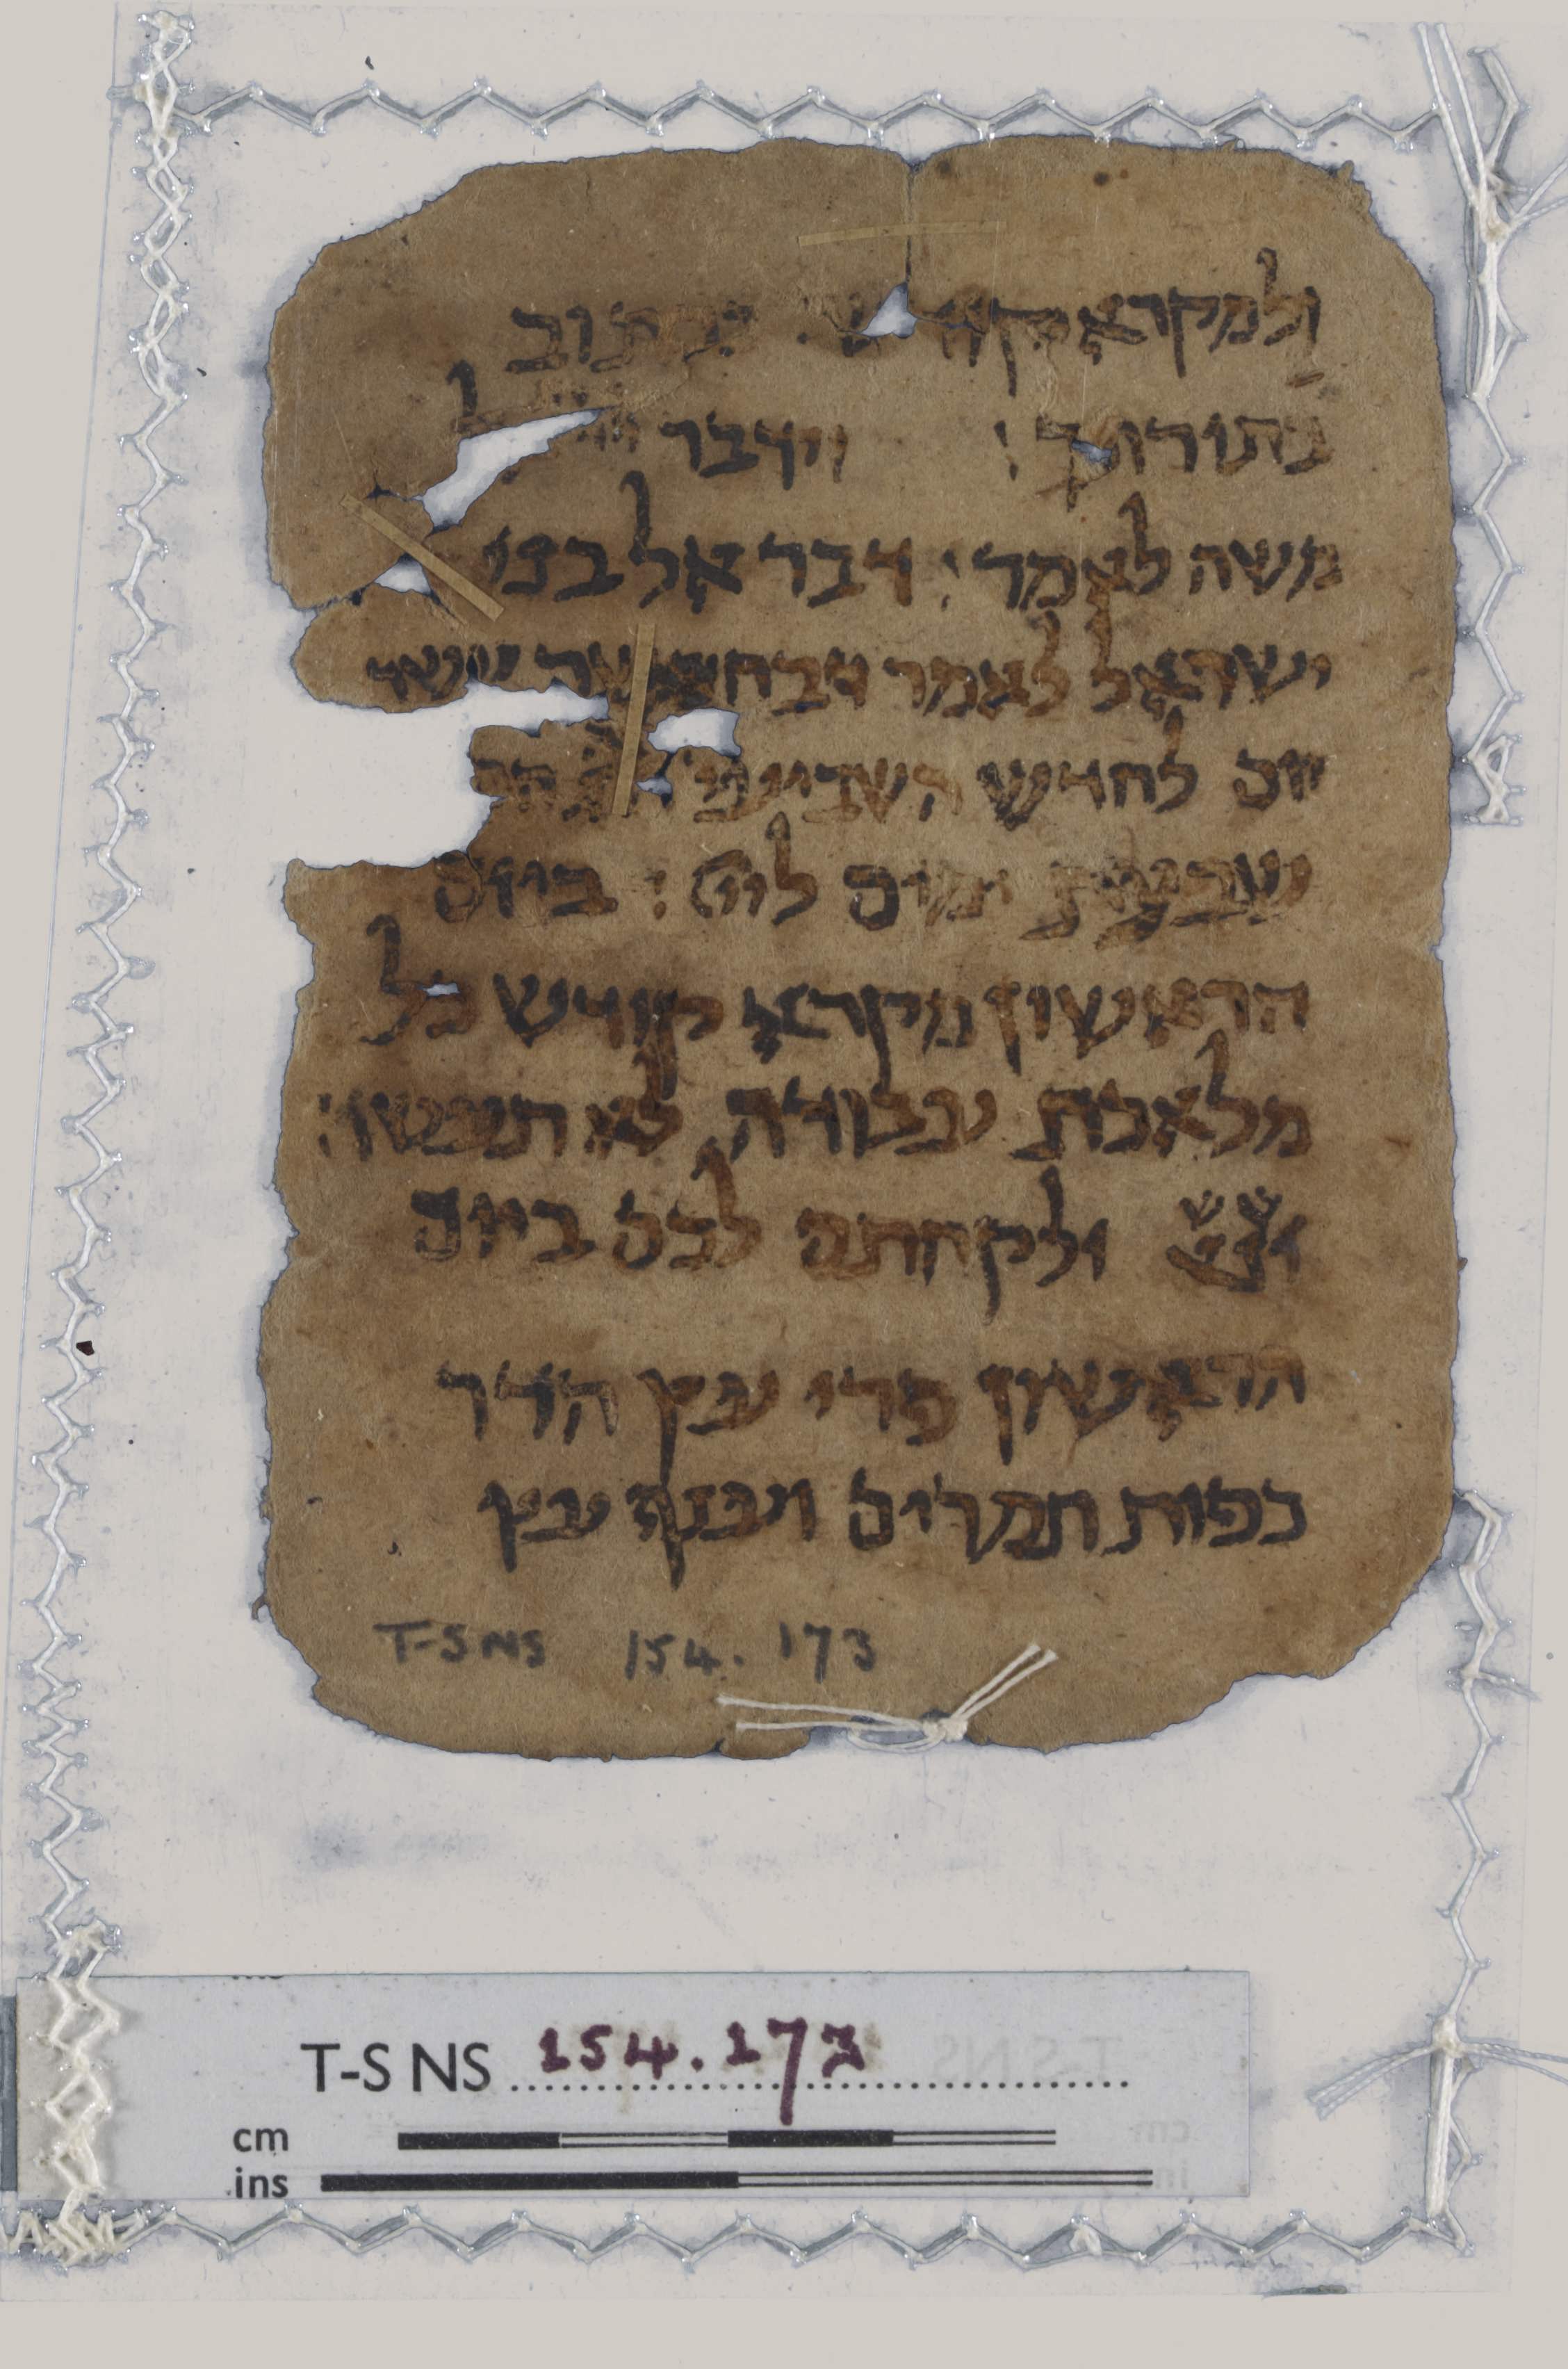 ולמקרא קודש ככתוב
בתורתך : וידבר אל
משה לאמר : דבר אל בני
ישראל לאמר ובחמשה עשר
יום לחודש השביעי הזה
שבעת ימים לייי : ביום
הראשון מקרא קודש כל
מלאכת עבודה לא תעשו
ולקחתם לכם ביום
הראשון פרי עץ הדר
כפות תמרים וענף עץ
T-S NS 154.173
T-S NS 154.173
cm
ins